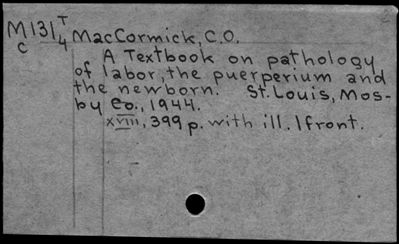 M131T4 MacCormick, C.O.
C
A Textbook on pathology
of labor, the puerperium and
the newborn. St. Louis, Mos-
by Co., 1944.
xviii, 399 p. with ill. 1 front.